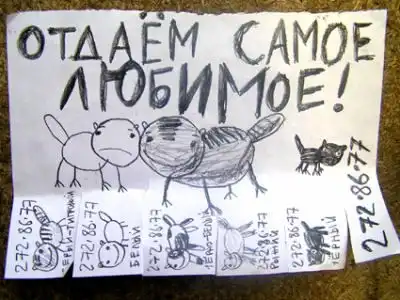 ОТДАЁМ САМОЕ
ЛЮБИМОЕ!
272-86-77
272-86-77
272-86-77
БЕЛЫЙ
272-86-77
272-86-77
РЫЖИЙ
272-86-77
ЧЁРНЫЙ